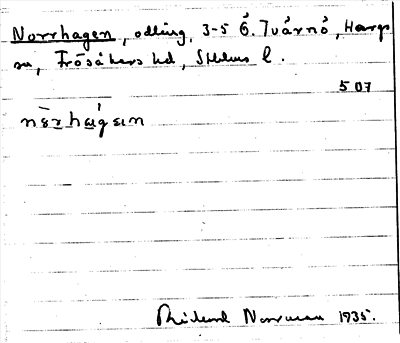 Norrhagen, odling, 3-5 6. Tvärnö, Hargs
sn, Frösåkers hd, Sthlms l.
507
Rikard Norrman 1935.